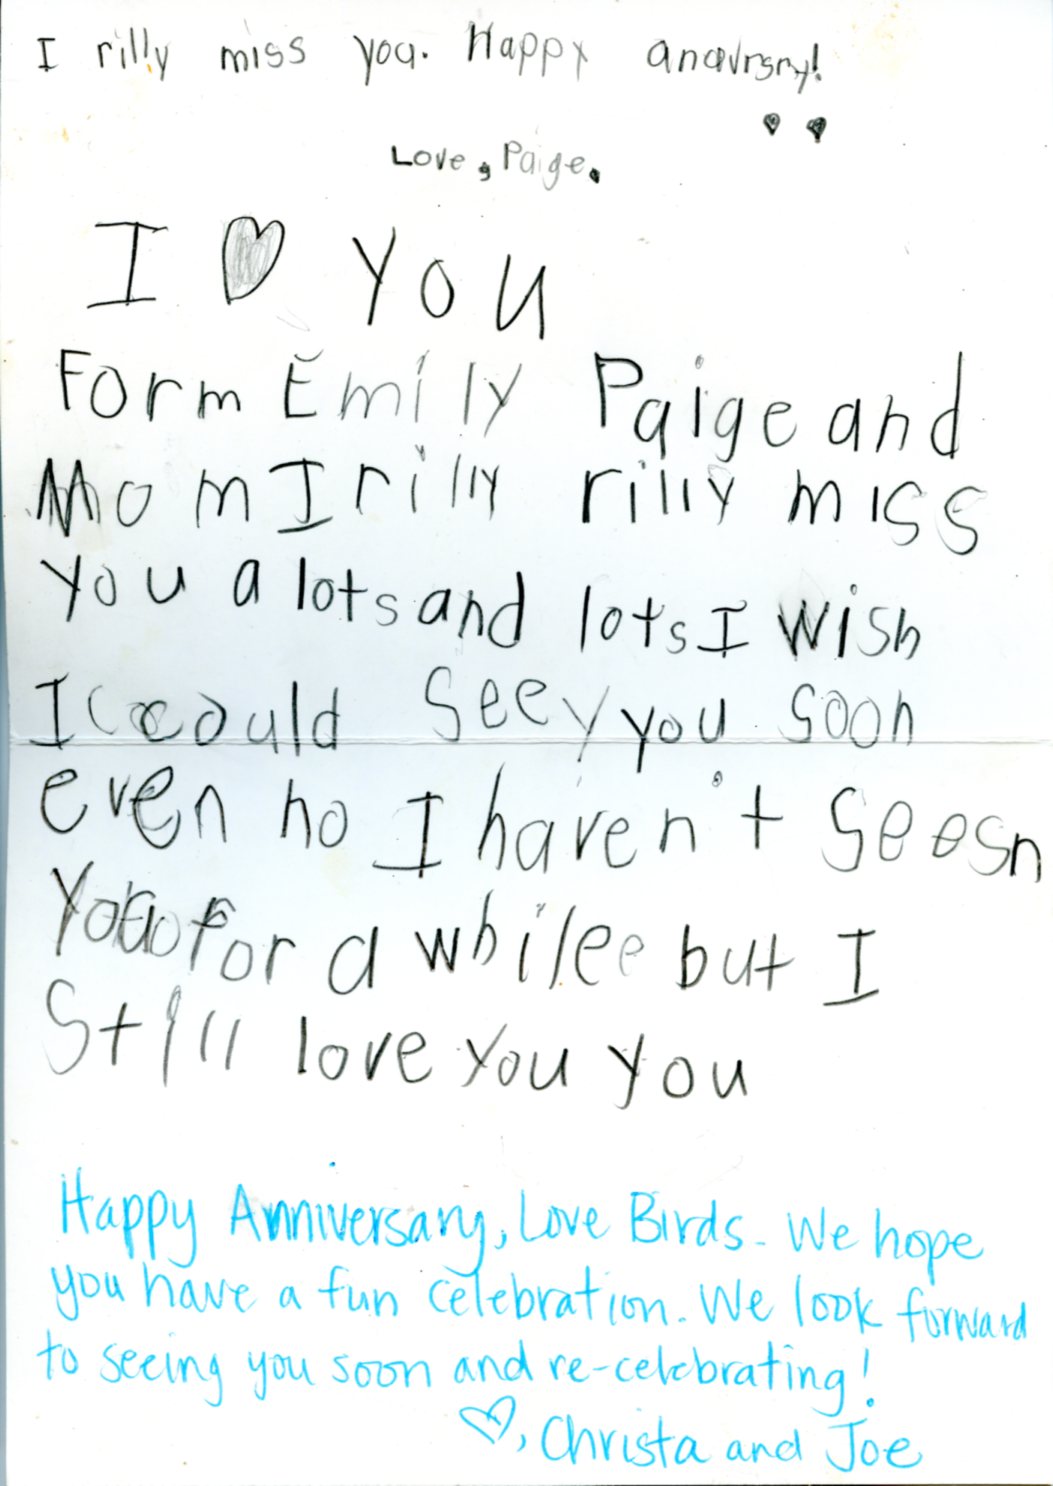 I rilly miss you. Happy anavrsry!
♥ ♥
Love, Paige.
I ♥ you
Form Emily Paige and
Mom I rilly rilly miss
you a lots and lots I wish
I could Seey you soon
even ho I haven't Seesn
You for a whilee but I
Still love you you
Happy Anniversary, Love Birds. We hope
you have a fun celebration. We look forward
to seeing you soon and re-celebrating!
♡, Christa and Joe